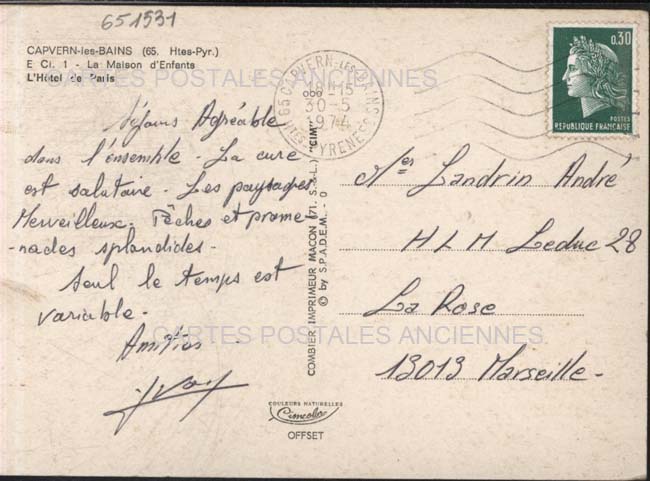 651531
CAPVERN-les-BAINS (65. Htes-Pyr.)
E Ci. 1 - La Maison d'Enfants
L'Hôtel de Paris
CARTES POSTALES ANCIENNES
65 CAPVERN-LES-BAINS
18-15
30-5
1974
HTES PYRENEES
0,30
POSTES
REPUBLIQUE FRANÇAISE
Séjours Agréable
dans l'ensemble. La cure
est salutaire. Les paysages
Merveilleux. Pêches et prome
-nades splendides.
Seul le temps est
variable.
Amitiés
COMBIER IMPRIMEUR MACON (71. S.-&-L.) "CIM"
© by S.P.A.D.E.M. - 0
Landrin André
HLM Leduc 28
La Rose
13013 Marseille.
CARTES POSTALES ANCIENNES
COULEURS NATURELLES
Cimcolor
OFFSET